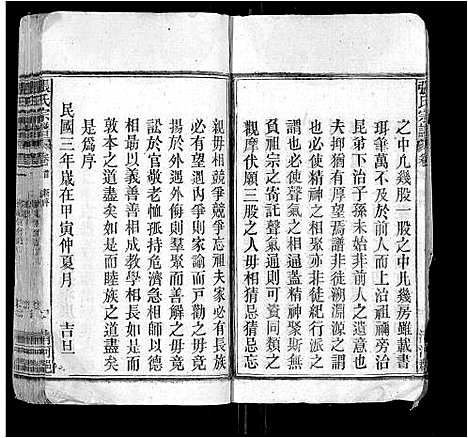 張氏宗譜 卷
之中凡幾股一股之中凡幾房雖載書
珥筆萬不及於前人而上治祖禰旁治
昆弟下治子孫未始非前人之志也且
夫抑猶有厚望焉譜非徒溯淵源之謂
也所以使精神之相聚亦非徒紀行派之
謂也必使聲氣之相通精神聚斯無
負祖宗之寄託聲氣通則可資同類之
觀摩伏願三股之人毋相猜忌猜忌忘
親毋相競爭競爭忘祖夫家必有長族
必有望遇內爭則家諭而戶勸之毋竟
揚於外遇外侮則羣聚而善解之毋竟
訟於官敬老恤孤持危濟急相師以德
相和以義善善相成教學相長如是而
敦本之道盡矣如是而睦族之道盡矣
是為序
民國三年歲在甲寅仲夏月 吉旦
張氏宗譜 卷首
清河郡